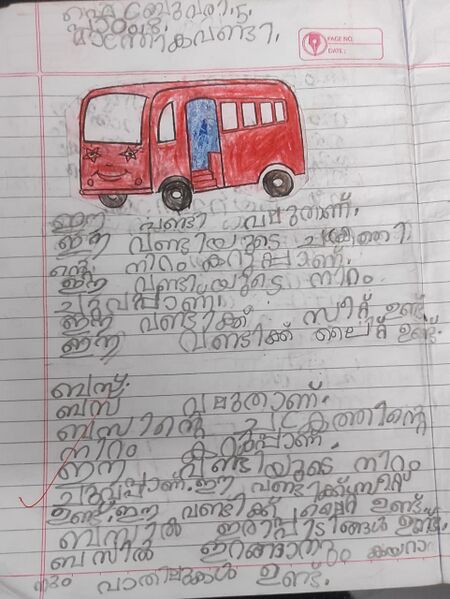 ഫെബ്രുവരി.5.
മാന്ത്രികവണ്ടി.
PAGE NO:
DATE:
ഈ വണ്ടി വലുതാണ്.
ഈ വണ്ടിയുടെ ചക്രത്തി
ന്റെ നിറം കറുപ്പാണ്.
ഈ വണ്ടിയുടെ നിറം
ചുവപ്പാണ്.
ഈ വണ്ടിക്ക് സീറ്റ് ഉണ്ട്
ഈ വണ്ടിക്ക് ലൈറ്റ് ഉണ്ട്.
ബസ്.
ബസ് വലുതാണ്.
ബസിന്റെ ചക്രത്തിന്റെ
നിറം കറുപ്പാണ്.
ഈ വണ്ടിയുടെ നിറം
ചുവപ്പാണ്. ഈ വണ്ടിക്ക് സീറ്റ്
ഉണ്ട്. ഈ വണ്ടിക്ക് ലൈറ്റ് ഉണ്ട്.
ബസിൽ ഇരിപ്പിടങ്ങൾ ഉണ്ട്.
ബസിൽ ഇറങ്ങാനും കയറാ
നും വാതിലുകൾ ഉണ്ട്.